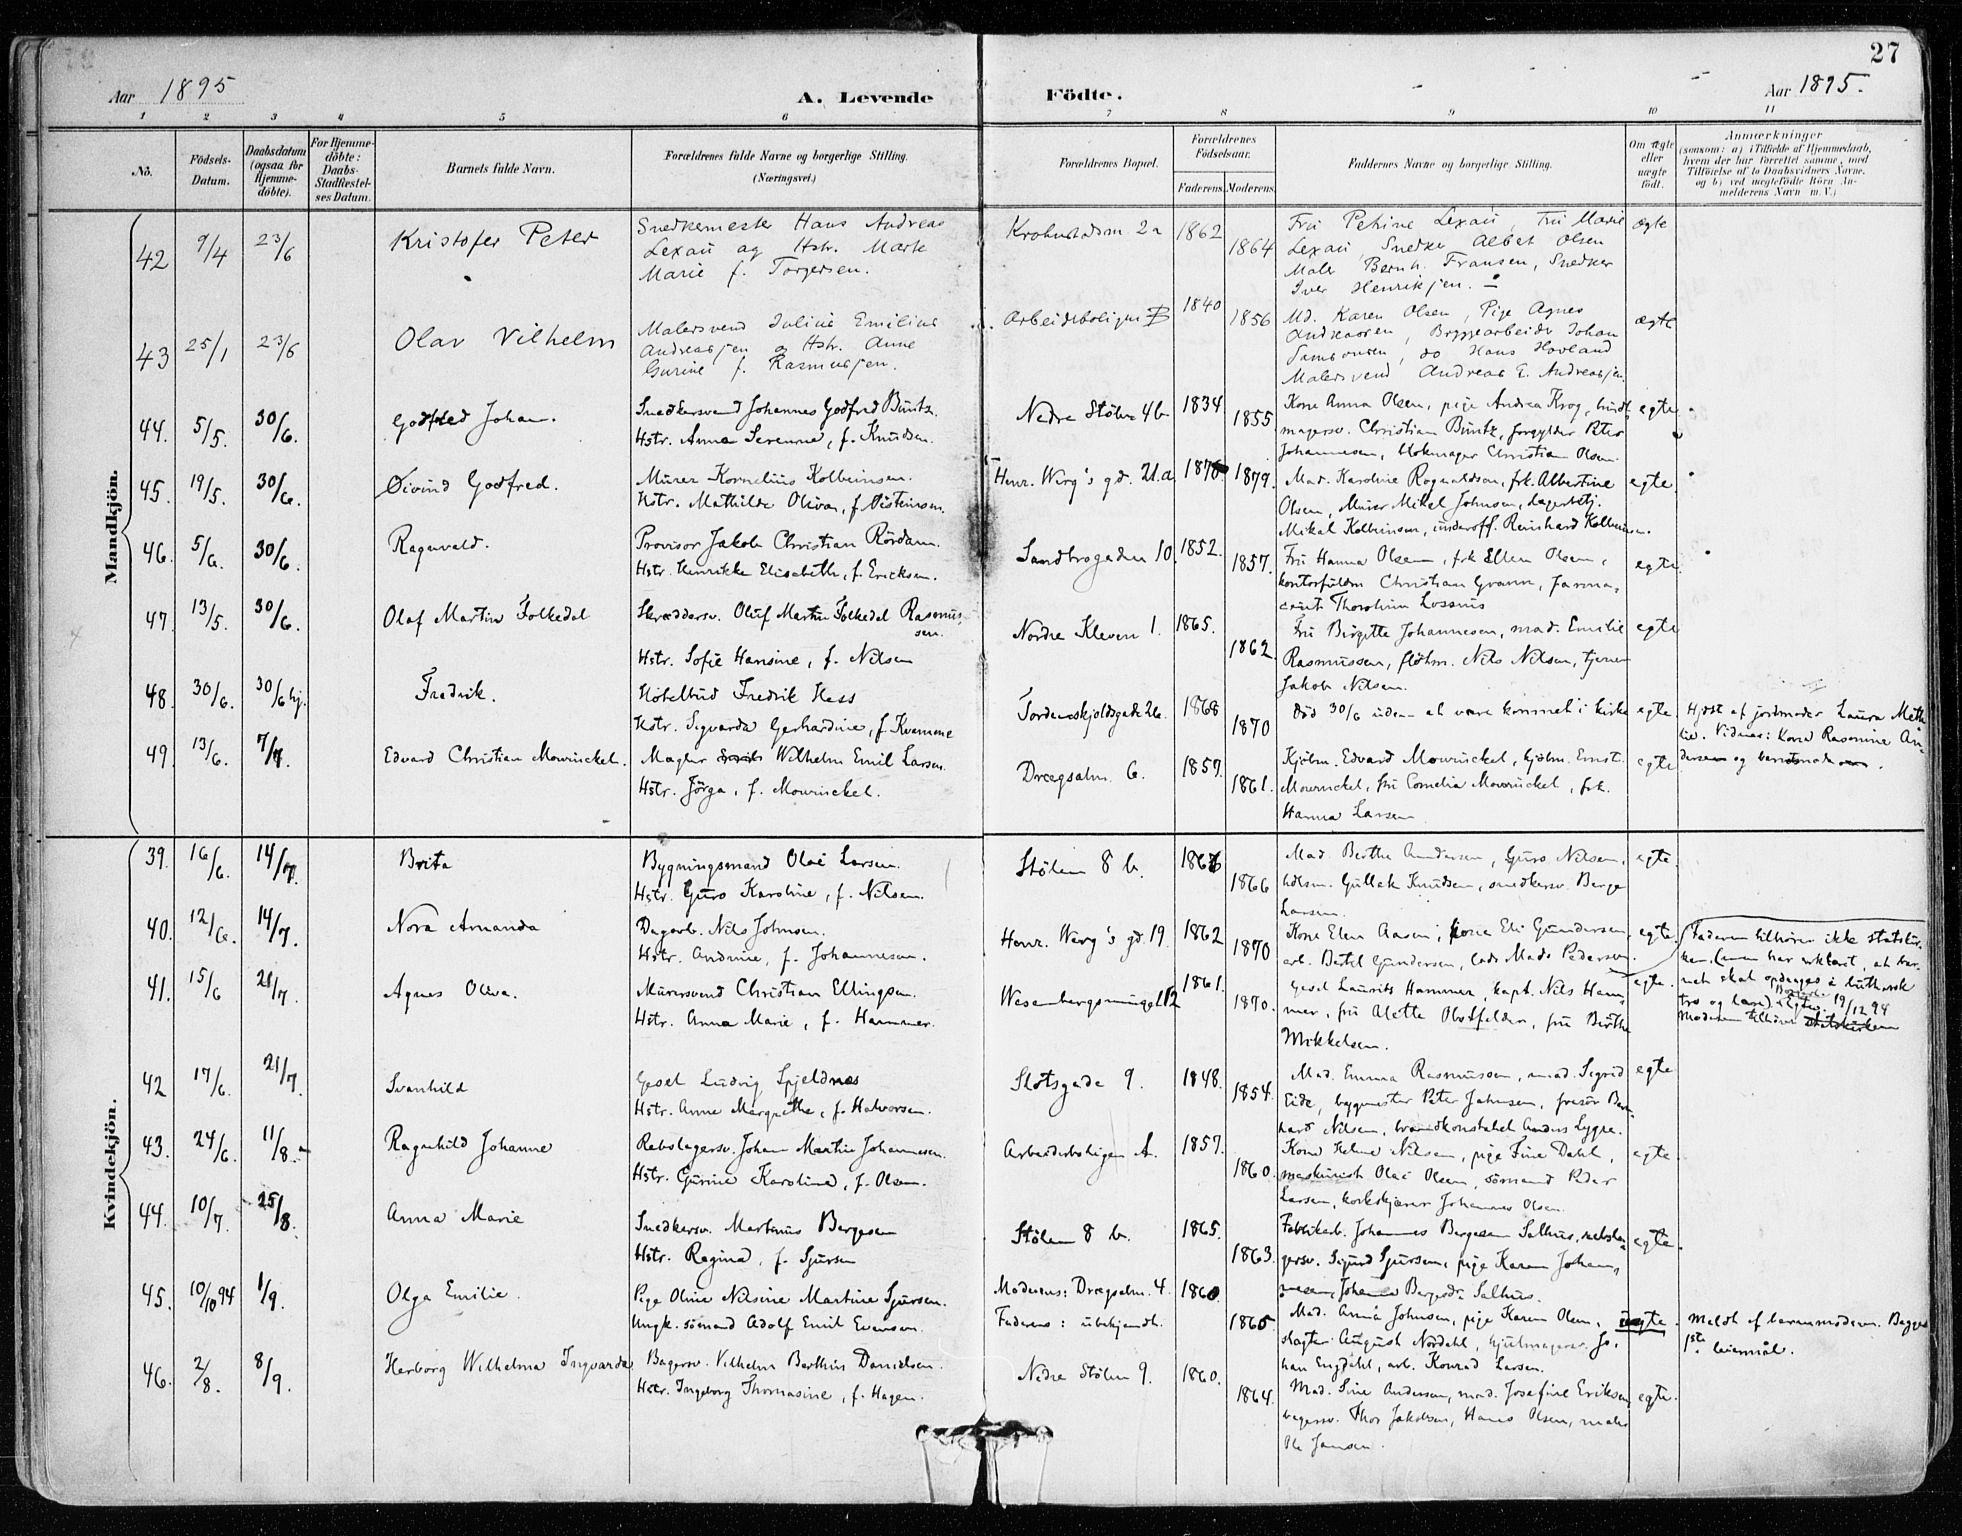 27
Aar 1895
A. Levende Födte.
Aar 1895.
1 2 3 4 5 6 7 8 9 10 11
No.
Födsels-Datum.
Daabsdatum (ogsaa for Hjemme-döbte).
For Hjemme-döbte: Daabs-Stadfæstel-ses Datum.
Barnets fulde Navn.
Forældrenes fulde Navne og borgerlige Stilling. (Næringsvei.)
Forældrenes Bopæl.
Forældrenes Födselsaar.
Faderens. Moderens.
Faddernes Navne og borgerlige Stilling.
Om ægte eller uægte födt.
Anmærkninger
(saasom: a) i Tilfælde af Hjemmedaab,
hvem der har forrettet samme, med
Tilföielse af to Daabsvidners Navne,
og b) ved uægtefödte Börn An-
melderens Navn m. V.)
Mandkjön.
42 9/4 23/6 Kristofer Peter
Snedkermester Hans Andreas
Lexau og Hstr. Marte
Marie f. Torgersen.
1862 1864
Fru Petrine Lexau, Fru Marie
Lexau Snedker Albet Olsen
Maler Bernh. Fransen, Snedker
Iver Henriksen.
ægte
43 25/1 23/6 Olav Vilhelm
Malersvend Julius Emilius
Andreasjen og Hstr. Anne
Gurine f. Rasmusjen.
Arbeideboligen B 1840 1856
Md. Karen Olsen, Pige Agnes
Andreassen, Bryggearbeider Johan
Samsonsen, do Hans Hovland
Malersvend Andreas E. Andreasjen.
ægte
44. 5/5. 30/6. Godfred Johan.
Snedkersvend Johannes Godfred Büntz.
Hstr. Anna Severine, f. Knudsen.
Nedre Stølen 4b 1834 1855.
Kone Anna Olsen, pige Andrea Krog,
magersv. Christian Büntz, forgylder Peter
Johannesen, blokmager Christian Olsen.
egte.
45. 19/5. 30/6. Øivind Godfred.
Murer Kornelius Kolbeinsen.
Hstr. Mathilde Oliva, f. Østeinsen.
Henr. Werg's gd. 21.a 1879.
Mad. Karoline Rognaldsen, frk. Albertine
Olsen, Murer Mikal Johnsen, lagerbetj.
Mikal Kolbeinsen, underoff. Reinhard Kolbeinsen.
egte.
46. 5/6. 30/6. Ragnvald.
Provisor Jakob Christian Rördam.
Hstr. Henrikke Elisabeth, f. Ericksen.
Sandbrogaden 10. 1852. 1857.
Fru Hanna Olsen, frk Ellen Olsen,
kontorfuldm Christian Gran, farma-
ceut Thorolium Lossius
egte.
47. 13/5. 30/6. Olaf Martin Folkedal
Skræddersv. Oluf Martin Folkedal Rasmus-
sen.
Hstr. Sofie Hansine, f. Nilsen
Nordre Kleven 1. 1865. 1862.
Fru Birgitte Johannesen, mad. Emilie
Rasmussen, Nils Nilsen, tjener
Jakob Nilsen.
egte
48. 30/6. 30/6 hj. Fredrik.
Hotelbud Fredrik Hess
Hstr. Sigvarda Gerhardine, f. Kvamme
Tordenskjoldsgade 26. 1868 1870
Död 30/6 uden at være kommet i kirke
egte.
Hjdt af jordmoder Laura Math-
ie. Vidner: Kone Rasmine An-
dersen og barnets moder.
49. 13/6. 7/7. Edvard Christian Mowinckel.
Mægler Wilhelm Emil Larsen.
Hstr. Jörga, f. Mowinckel.
Drægsalm. 6. 1857. 1861.
Kjøbm. Edvard Mowinckel, kjöbm. Ernst.
Mowinckel, fru Cornelia Mowinckel, frk.
Hanna Larsen
egte
Kvindekjön.
39. 16/6. 14/7. Brita
Bygningsmand Olai Larsen.
Hstr. Guro Karoline, f. Nilsen.
Stölen 8 b. 1866
Mad. Berthe Andersen, Guro Nilsen,
Gullak Knudsen, snedkersv. Berge
Larsen.
egte.
40. 12/6. 14/7. Nora Amanda
Dagarb. Nils Johnsen.
Hstr. Andrine, f. Johannesen.
Henr. Werg's gd. 19. 1862 1870
Kone Elen Aasen, kone Eli Gundersen,
arb. Bertel Gundersen, lods Mads Pedersen.
egte.
Faderen tilhörer ikke statskir-
ken, (men har erklæret, at bar-
net skal opdrages i luthersk
tro og lære). 19/12 94
Moderen tilhörer statskirken
41. 15/6 21/7. Agnes Oliva.
Murersvend Christian Ellingsen.
Hstr. Anna Marie, f. Hammer.
1861. 1870.
Gesel Laurits Hammer, kapt. Nils Ham-
mer, fru Alette Obstfelder, fru Berthe
Mikkelsen.
egte.
42 17/6. 21/7. Svanhild
Gesel Ludvig Spjeldnæs
Hstr. Anne Margrethe, f. Halvorsen.
Slotsgade 9. 1848. 1854.
Mad. Emma Rasmussen, mad. Sigrid
Eide, bygmester Peter Johnsen, frisör Bern-
hard Nilsen, brandkonstabel Anders Lygre.
egte
43. 24/6. 11/8. Ragnhild Johanne
Rebslagersv. Johan Martin Johannesen.
Hstr. Gurine Karoline, f. Olsen.
Arbeiderboligen A. 1857. 1860.
Kone Helene Nilsen, pige Fine Dahl,
maskinist Olai Olsen, sömand Peder
Larsen, korkskjærer Johannes Olsen.
egte.
44. 10/7. 25/8. Anna Marie
Snedkersv. Martinus Bergesen
Hstr. Regina, f. Sjursen
Stölen 8 b. 1865. 1863.
Fabrikarb. Johannes Bergesen Salhus, rebsla-
gersv. Sigurd Sjursen, pige Karen Johan-
nesen, Johanna Bergesda Salhus.
egte.
45. 10/10 94 1/9. Olga Emilie.
Pige Oline Nilsine Martine Sjursen.
Ungk. sömand Adolf Emil Evensen.
Moderens: Drægsalm. 4.
Faderens: ubekjendt.
1860. 1865
Mad. Anna Johnsen, pige Karen Olsen,
slagter August Nordahl, hjulmagersv. Jo-
han Engdahl, arb. Konrad Larsen.
uegte.
Meldt af barnemoderen. Begges
1ste leiermål.
46. 2/8. 8/9. Herborg Wilhelma Ingvarda
Bagersv. Vilhelm Berthin Danielsen.
Hstr. Ingeborg Thomasine, f. Hagen.
Nedre Stölen 9. 1860. 1864.
Mad. Sine Andersen, mad. Josefine Eriksen,
bagersv. Thor Jakobsen, Hans Olsen, maler
Ole Jansen.
egte.